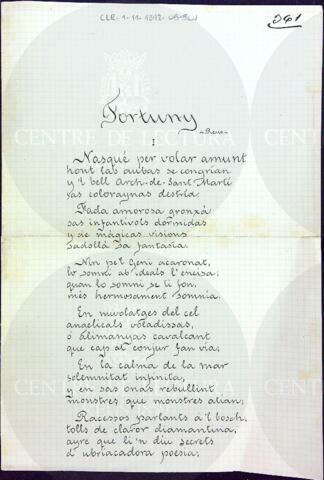 CLR-1-11-1892-
241
Fortuny
- Reus -
CENTRE DE LECTURA
I
Nasqué per volar amunt
hont las aubas se congrian
y 'l bell Arch-de-Sant Martí
sas coloraynas destría.
Fada amorosa gronxá
sas infantívols dormidas
y de mágicas visions
sadollá sa fantasía.
Nin pe'l Geni acaronat,
lo somni ab ideals l'encisa;
quan lo somni se li fon,
més hermosament somnía.
En nuvolatges del cel
angelicals voladissas,
ó alimanyas cavalcant
que cap al conjur fan via;
En la calma de la mar
solemnitat infinita,
y en sas onas rebullint
monstres que monstres atian;
Racessos parlants á 'l bosch,
tolls de claror diamantina,
ayre que li 'n diu secrets
d' ubriacadora poesía;